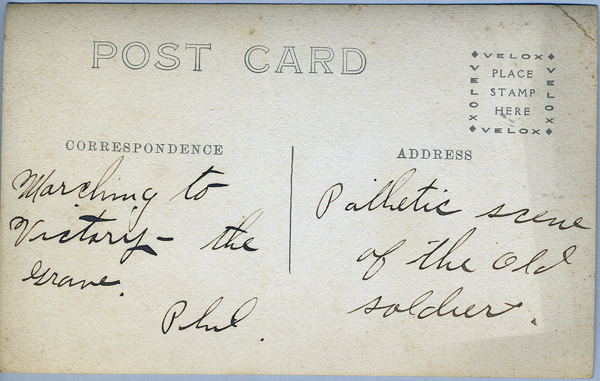 POST CARD
VELOX
VELOX
VELOX
VELOX
PLACE
STAMP
HERE
CORRESPONDENCE
Marching to
Victory - the
grave.
Phil.
ADDRESS
Pathetic scene
of the old
soldier.